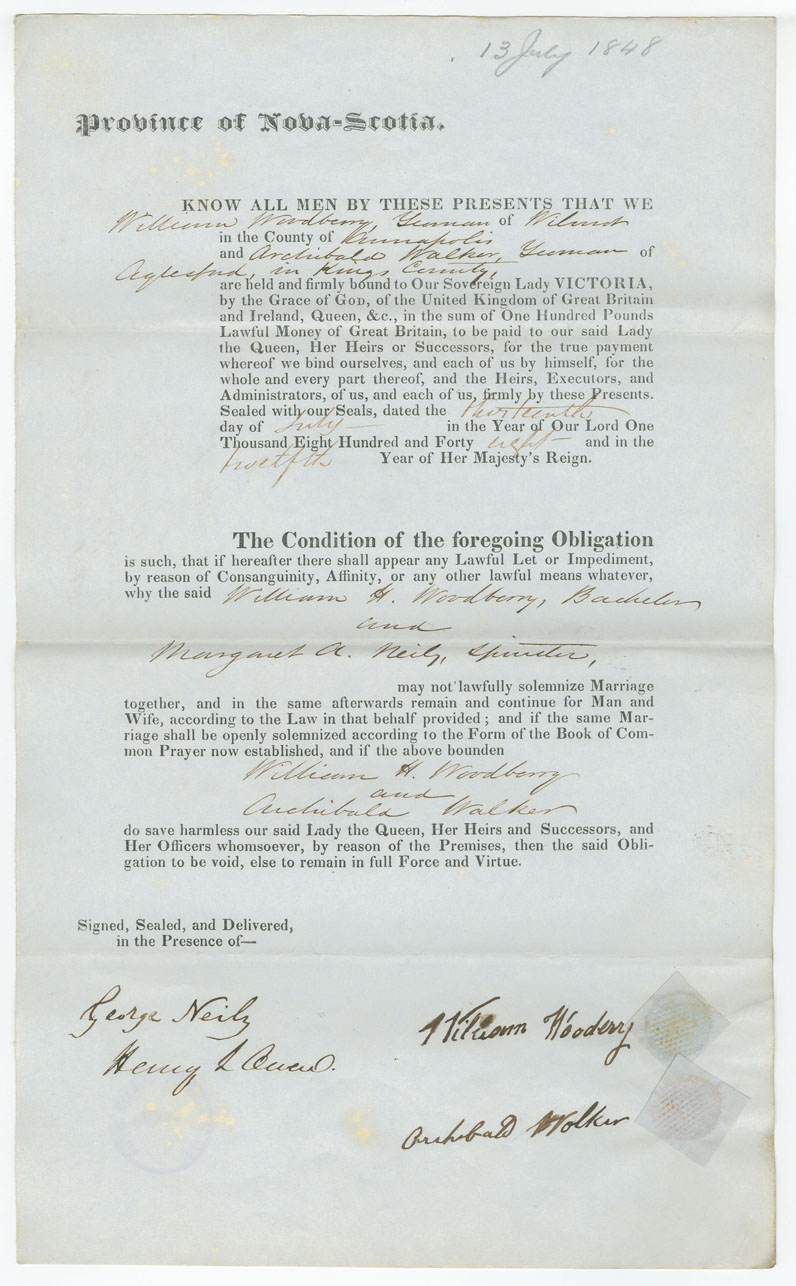 13 July 1848
Province of Nova-Scotia.
KNOW ALL MEN BY THESE PRESENTS THAT WE
William Woodberry, Yeoman of Wilmot
in the County of Annapolis
and Archibald Walker, Yeoman of
Aylesford, in Kings County,
are held and firmly bound to Our Sovereign Lady VICTORIA,
by the Grace of GOD, of the United Kingdom of Great Britain
and Ireland, Queen, &c., in the sum of One Hundred Pounds
Lawful Money of Great Britain, to be paid to our said Lady
the Queen, Her Heirs or Successors, for the true payment
whereof we bind ourselves, and each of us by himself, for the
whole and every part thereof, and the Heirs, Executors, and
Administrators, of us, and each of us, firmly by these Presents.
Sealed with our Seals, dated the thirteenth
day of July in the Year of Our Lord One
Thousand Eight Hundred and Forty eight and in the
twelfth Year of Her Majesty's Reign.
The Condition of the foregoing Obligation
is such, that if hereafter there shall appear any Lawful Let or Impediment,
by reason of Consanguinity, Affinity, or any other lawful means whatever,
why the said William H. Woodberry, Bachelor
and
Margaret A. Neily, Spinster,
may not lawfully solemnize Marriage
together, and in the same afterwards remain and continue for Man and
Wife, according to the Law in that behalf provided; and if the same Mar-
riage shall be openly solemnized according to the Form of the Book of Com-
mon Prayer now established, and if the above bounden
William H. Woodberry
and
Archibald Walker
do save harmless our said Lady the Queen, Her Heirs and Successors, and
Her Officers whomsoever, by reason of the Premises, then the said Obli-
gation to be void, else to remain in full Force and Virtue.
Signed, Sealed, and Delivered,
in the Presence of—
George Neily
William Wooderry
Henry L Owen.
Archibald Wolker